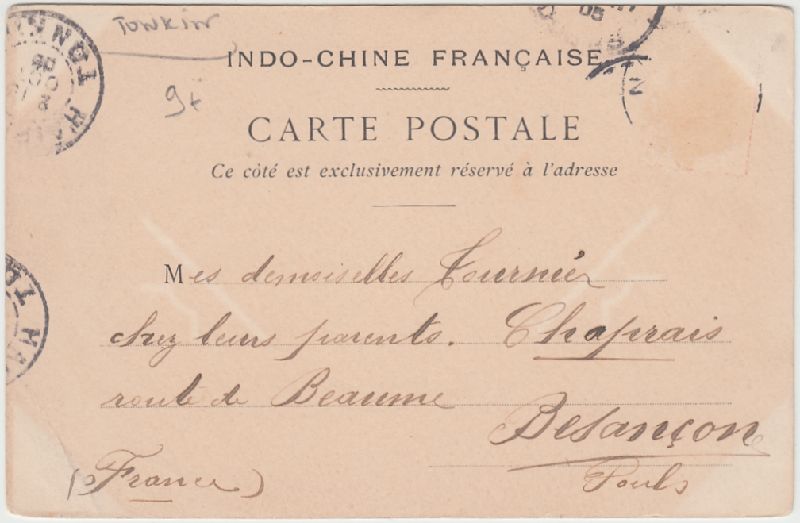 TONKIN
INDO-CHINE FRANÇAISE
9x
CARTE POSTALE
Ce côté est exclusivement réservé à l'adresse
Mes demoiselles Tournier
chez leurs parents. Chaprais
route de Beaume
Besançon
(France)
Doubs
05
TONKIN